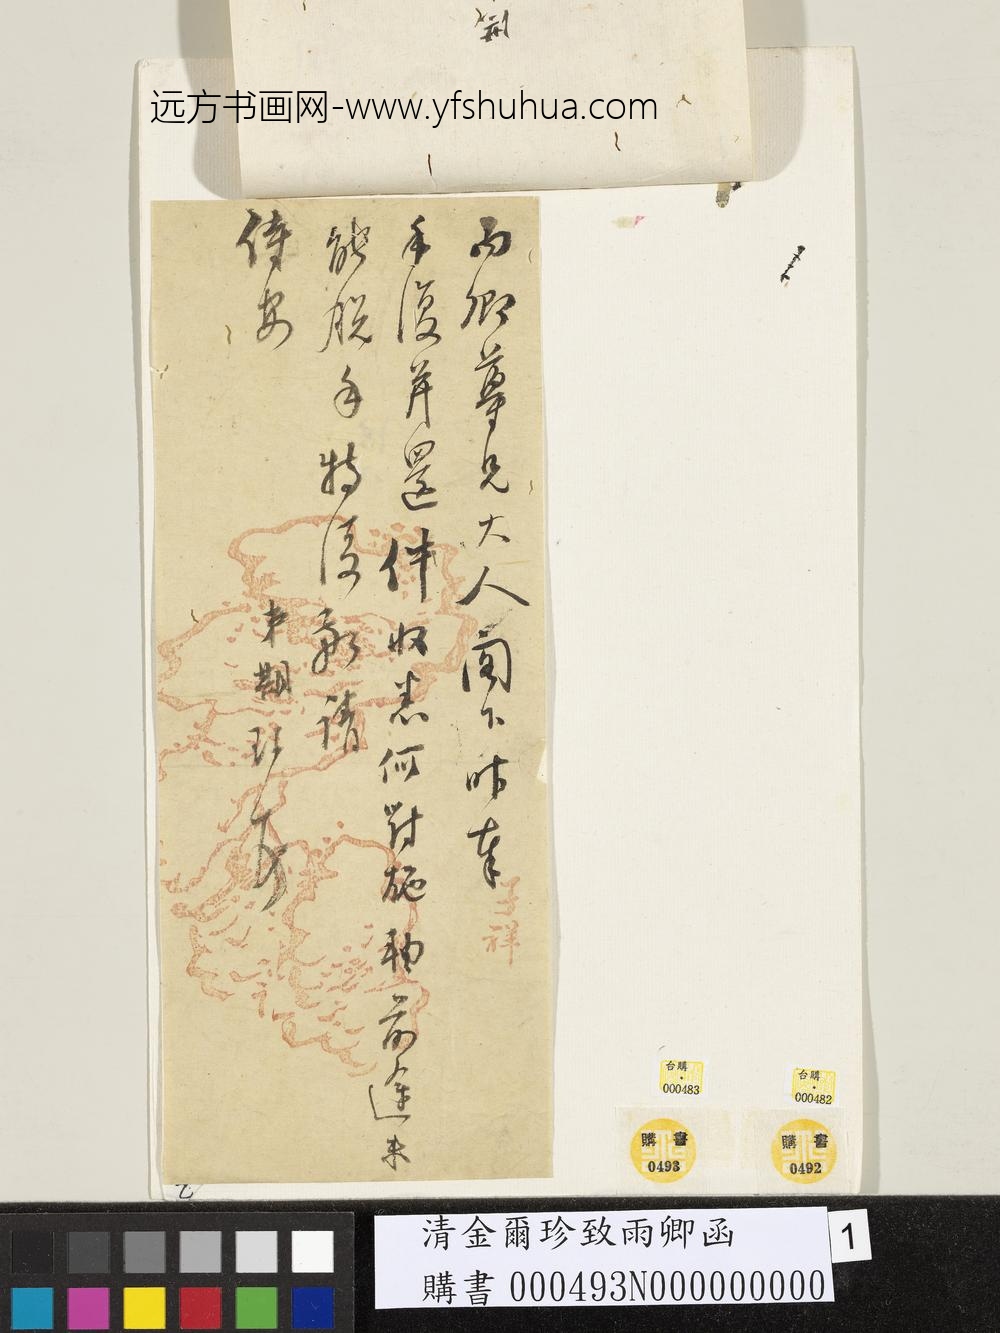 荆
远方书画网-www.yfshuhua.com
雨卿尊兄大人閣下昨奉
手復并還件收悉何對施種前途未
能脫手特復敬請
侍安
弟期珍頓
子祥
台購
000483
台購
000482
購書
0493
購書
0492
清金爾珍致雨卿函
購書000493N000000000
1